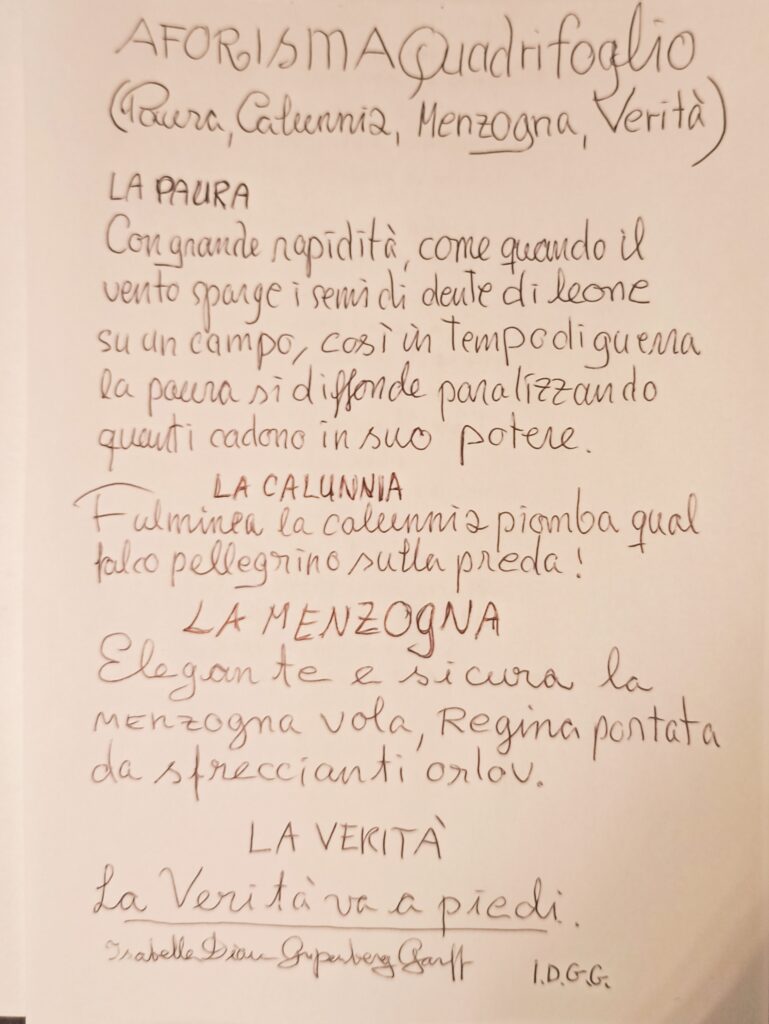 AFORISMA Quadrifoglio
(Paura, Calunnia, Menzogna, Verità)
LA PAURA
Con grande rapidità, come quando il
vento sparge i semi di dente di leone
su un campo, così in tempo di guerra
la paura si diffonde paralizzando
quanti cadono in suo potere.
LA CALUNNIA
Fulminea la calunnia piomba qual
falco pellegrino sulla preda!
LA MENZOGNA
Elegante e sicura la
menzogna vola, Regina portata
da sfreccianti orlov.
LA VERITÀ
La Verità va a piedi.
Isabella Dian
I.D.G.G.